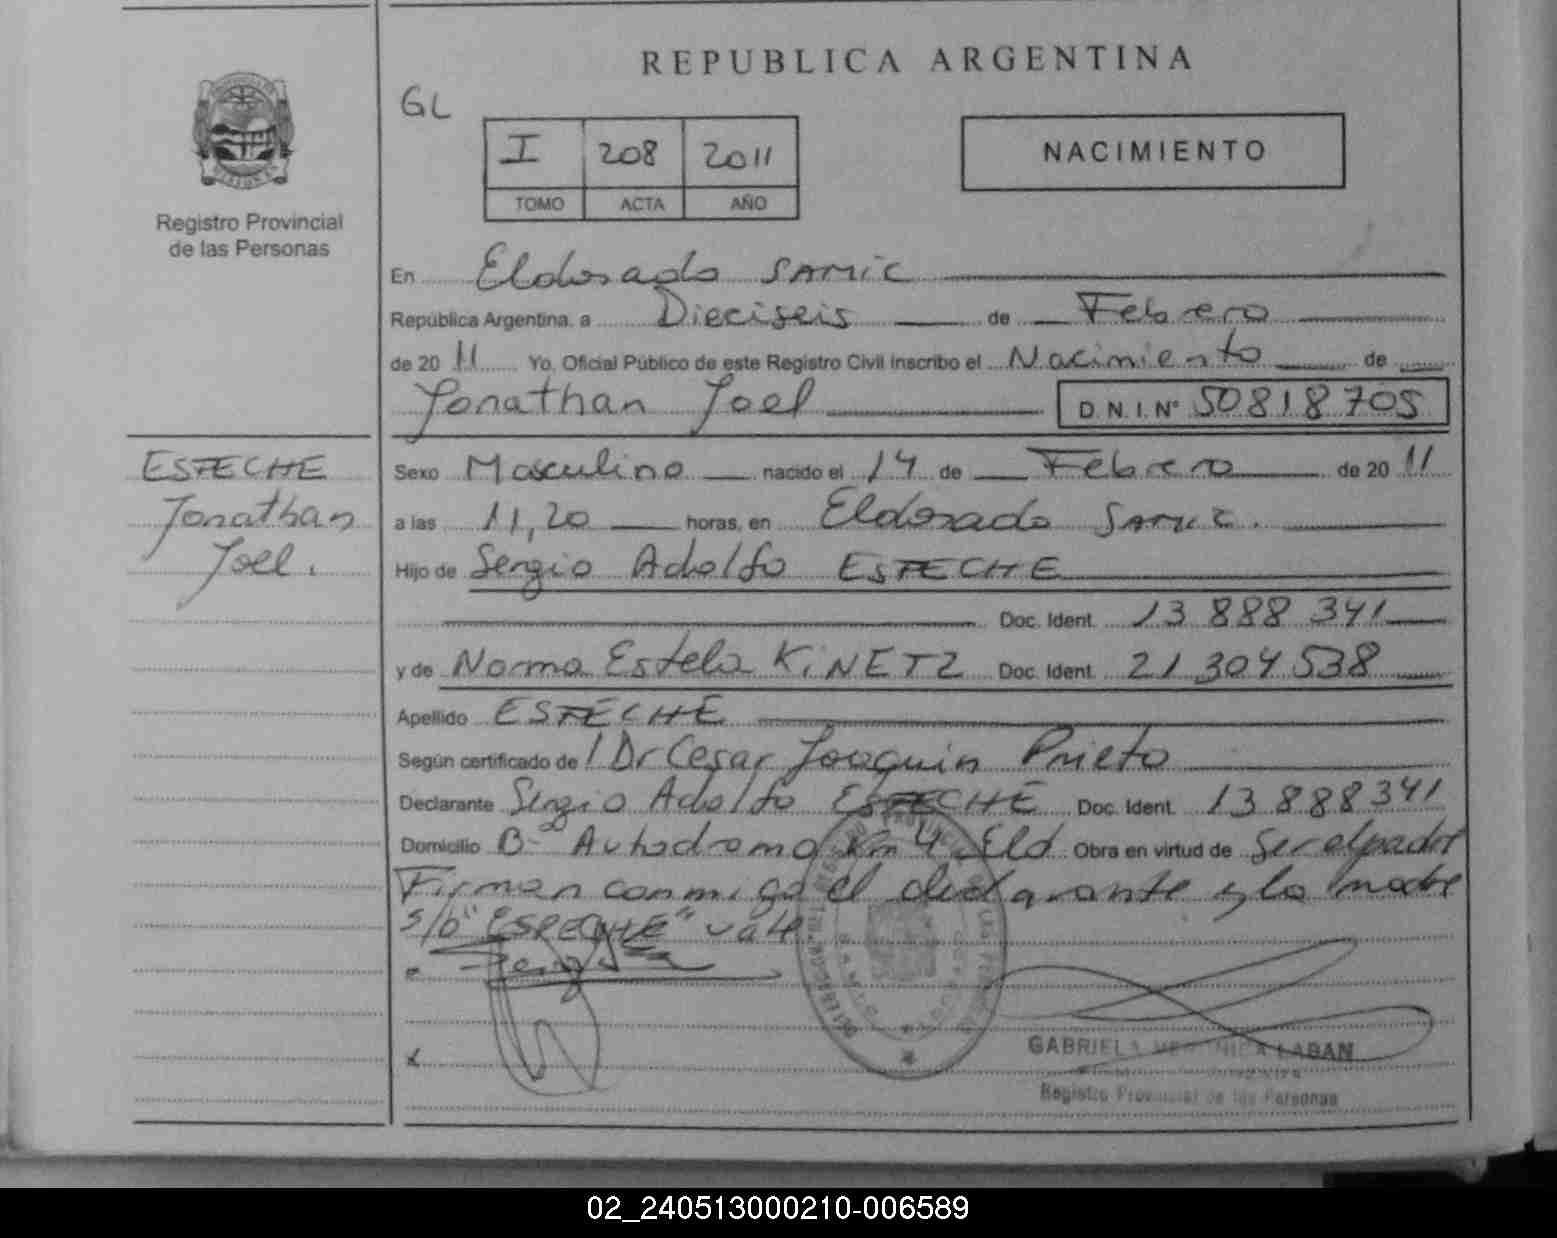 REPUBLICA ARGENTINA
GL
I 208 2011
TOMO ACTA AÑO
NACIMIENTO
Registro Provincial
de las Personas
En Eldorado SAMIC
República Argentina, a Dieciseis de Febrero
de 2011 Yo, Oficial Público de este Registro Civil inscribo el Nacimiento de
Jonathan Joel D.N.I.N° 50818705
ESPECHE
Jonathan
Joel.
Sexo Masculino nacido el 14 de Febrero de 2011
a las 11,20 horas, en Eldorado SAMIC.
Hijo de Sergio Adolfo ESPECHE
Doc. Ident. 13 888 341
y de Norma Estela KiNETZ Doc. Ident. 21 304 538
Apellido ESPECHE
Según certificado de / Dr Cesar Joaquin Prieto
Declarante Sergio Adolfo ESPECHE Doc. Ident. 13 888 341
Domicilio B° Autodromo Km 4 Eld Obra en virtud de Ser el padre
Firman conmigo el declarante y la madre
s/b "ESPECHE" vale
GABRIELA VERONICA LABAN
Registro Provincial de las Personas
02_240513000210-006589